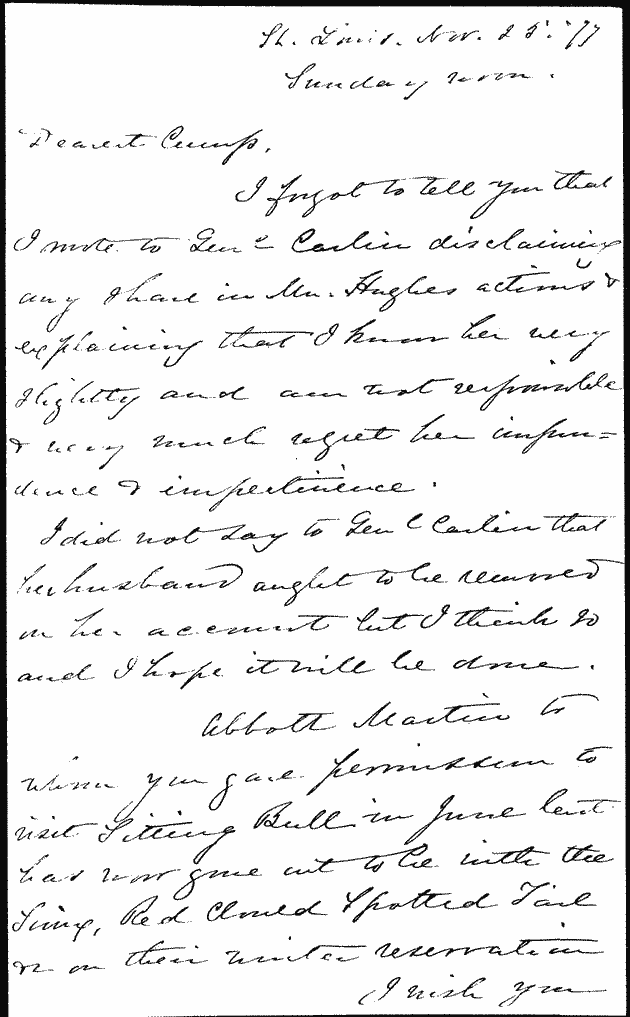 St. Louis. Nov. 25. '77
Sunday noon.
Dearest Cump,
I forgot to tell you that
I wrote to Genl Carlin disclaiming
any share in Mrs. Hughes actions &
explaining that I know her very
slightly and am not responsible
& very much regret her impu=
dence & impertinence.
I did not say to Genl Carlin that
her husband aught to be removed
on her account but I think so
and I hope it will be done.
Abbott Martin to
whom you gave permission to
visit Sitting Bull in June last
has now gone out to be with the
Sioux, Red Cloud Spotted Tail
&c on their winter reservation
I wish you